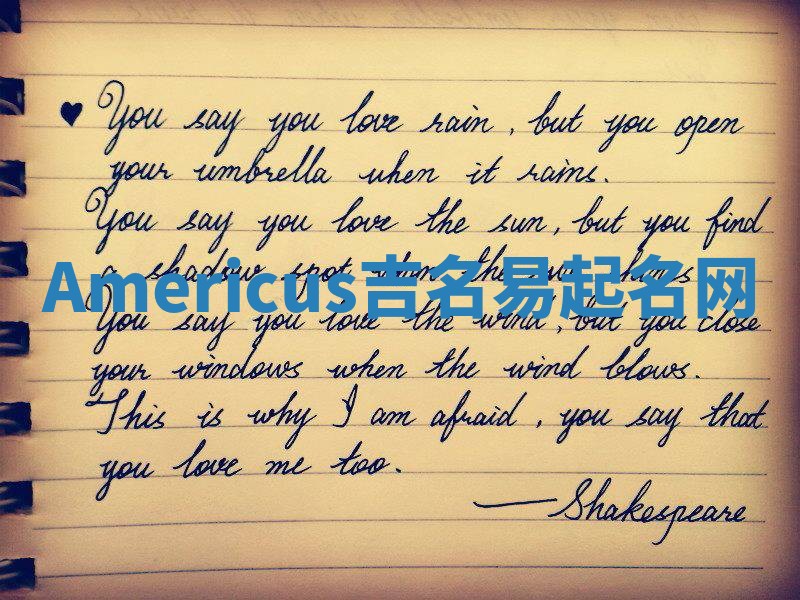 ♥ You say you love rain, but you open
your umbrella when it rains.
You say you love the sun, but you find
a shadow spot when the sun shines
Americus吉名易起名网
You say you love the wind, but you close
your windows when the wind blows.
This is why I am afraid, you say that
you love me too.
—Shakespeare